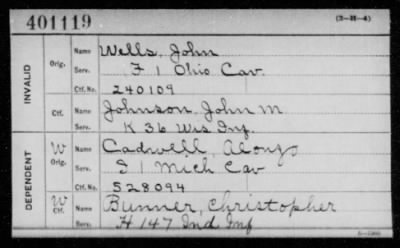 401119 (3-H-4)
INVALID
Orig. Name Wells, John
Serv. F 1 Ohio Cav.
Ctf. No. 240109
Ctf. Name Johnson, John M
Serv. K 36 Wis Inf.
DEPENDENT
W Orig. Name Cadwell, Alonzo
Serv. I 1 Mich Cav
Ctf. No. 528094
W Ctf. Name Bunner, Christopher
Serv. H 147 Ind Inf